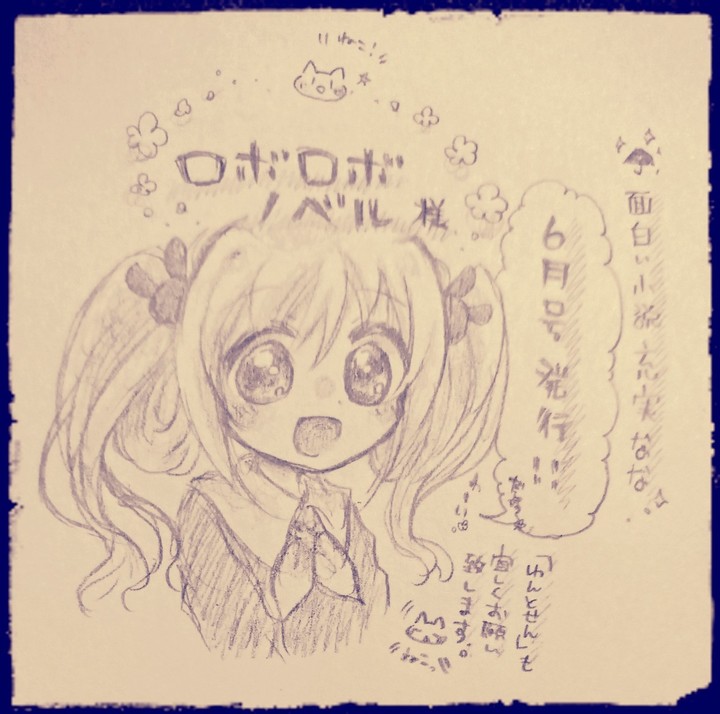 ねこ!
ロボロボ
ノベル 様
面白い小説充実なな
6月号発行!!
だよっ
「わんとせん」も
宜しくお願い
致します。
ねこっ